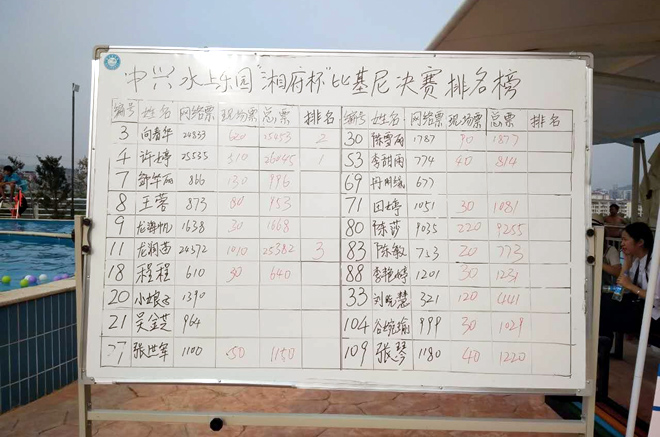 中兴水上乐园"湘府杯"比基尼决赛排名榜
编号 姓名 网络票 现场票 总票 排名 编号 姓名 网络票 现场票 总票 排名
3 向春华 24833 620 25453 2 30 陈雪丽 1787 90 1877
4 许婷 25535 510 26045 1 53 李甜雨 774 40 814
7 866 130 996 69 677
8 王蓉 873 80 953 71 田婷 1051 30 1081
9 1638 30 1668 80 陈莎 9035 220 9255
11 24372 1010 25382 3 83 陈敏 753 20 773
18 程程 610 30 640 88 李艳婷 1201 30 1231
20 小娘子 1390 33 刘晓慧 321 120 441
21 吴金芝 964 104 谷婉瑜 999 30 1029
27 张世军 1100 50 1150 109 张琴 1180 40 1220